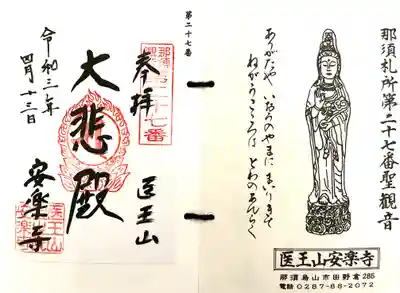 那須札所第二十七番聖観音
ありがたや いおうのやまに まいりきて
ねがうこころは とわのあんらく
医王山安楽寺
那須烏山市田野倉285
電話 0287-88-2072
第二十七番
奉拝
医王山
大悲殿
安楽寺
令和三年
四月十三日